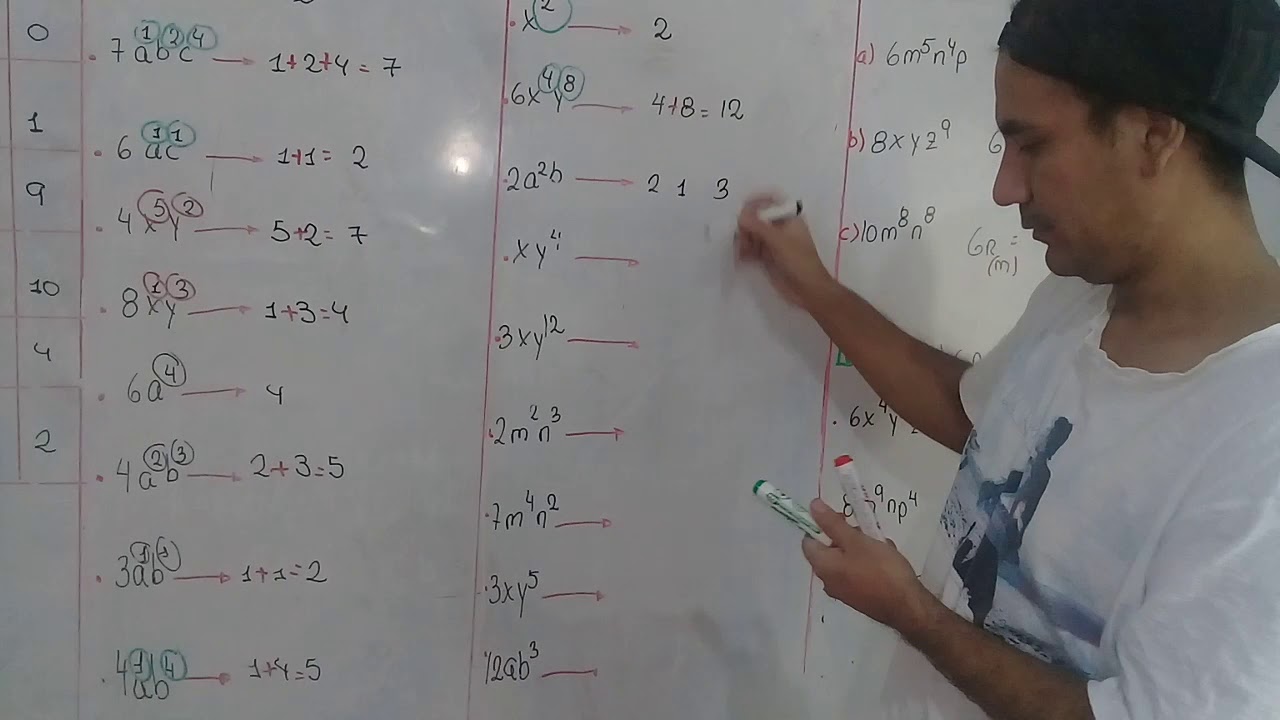 0
1
9
10
4
2
. 7a¹b²c⁴ → 1+2+4 = 7
. 6a¹c¹ → 1+1 = 2
. 4x⁵y² → 5+2 = 7
. 8x¹y³ → 1+3=4
. 6a⁴ → 4
. 4a²b³ → 2+3=5
. 3a¹b¹ → 1+1=2
. 4a¹b⁴ → 1+4=5
. x² → 2
. 6x⁴y⁸ → 4+8=12
. 2a²b → 2 1 3
. xy⁴ →
. 3xy¹² →
. 2m²n³ →
. 7m⁴n² →
. 3xy⁵ →
. 12ab³ →
a) 6m⁵n⁴p
b) 8xyz⁹
c) 10m⁸n⁸ GR =
(m)
. 6x⁴y
np⁴